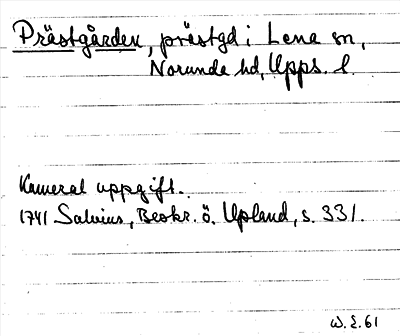 Prästgården, prästgd i Lena sn,
Norunda hd, Upps. l.
Kameral uppgift.
1741 Salvius, Beskr. ö. Upland, s. 331.
W.E. 61